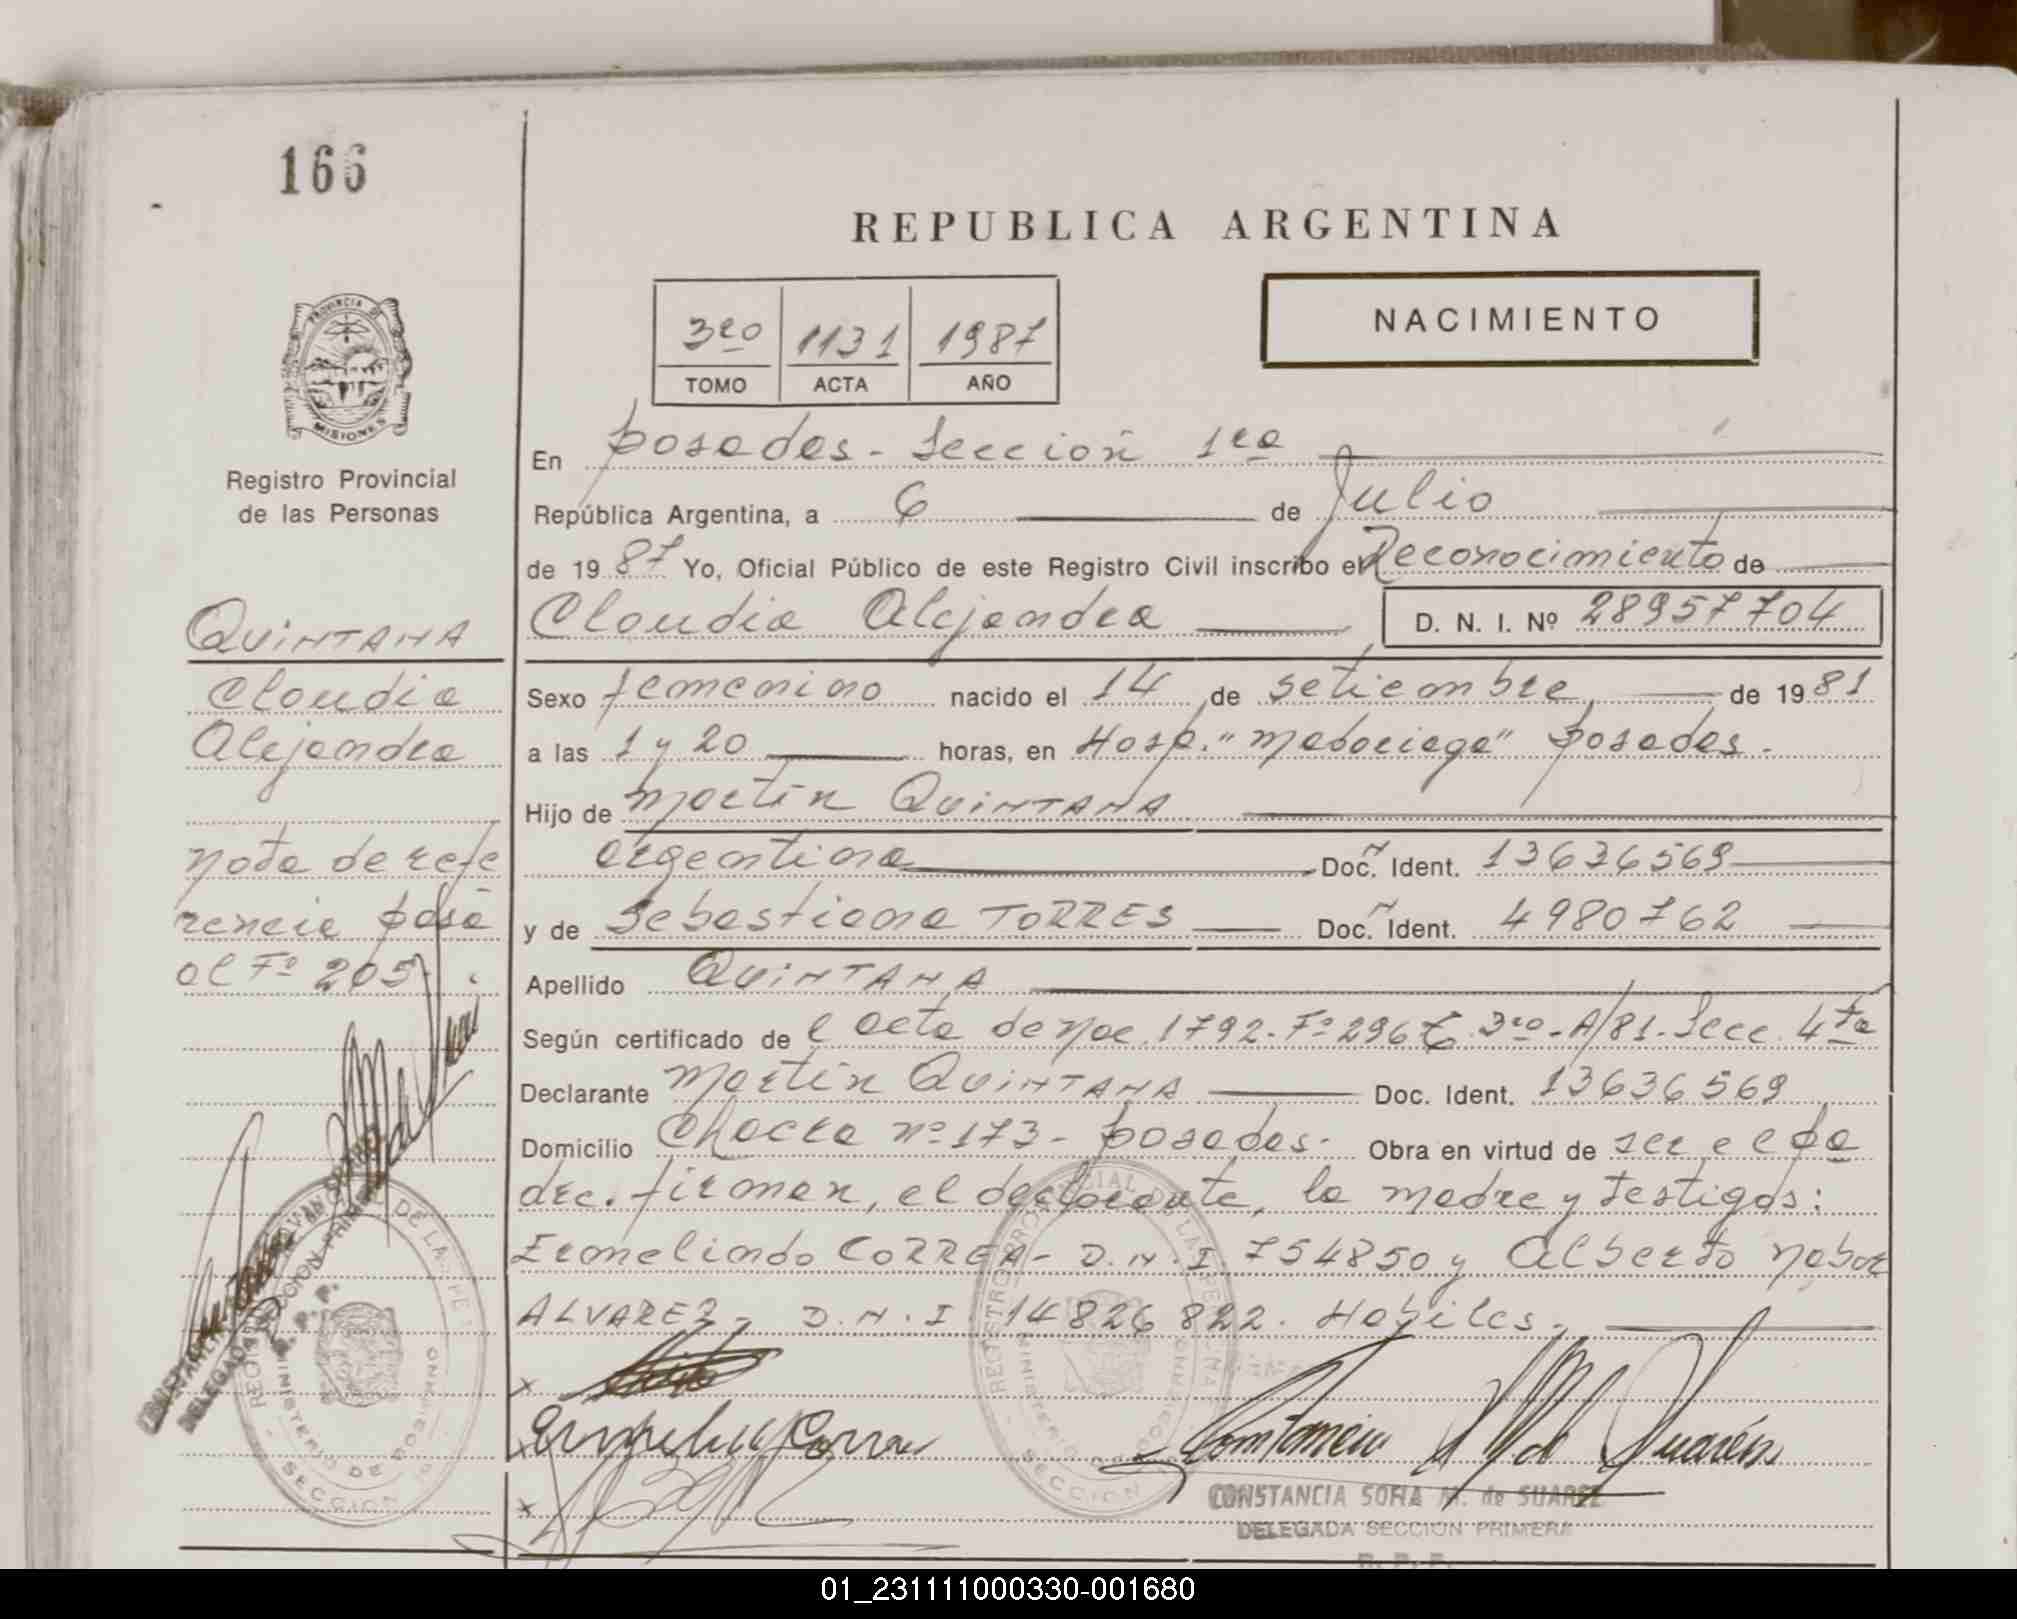 166
REPUBLICA ARGENTINA
NACIMIENTO
3ro 1131 1987
TOMO ACTA AÑO
PROVINCIA DE
MISIONES
Registro Provincial
de las Personas
QUINTANA
Claudia
Alejandra
nota de refe
rencia pasa
al Fº 205
En Posadas - Sección 1ra
República Argentina, a 6 de Julio
de 1987 Yo, Oficial Público de este Registro Civil inscribo el Reconocimiento de
Claudia Alejandra D. N. I. Nº 28957704
Sexo femenino nacido el 14 de setiembre de 1981
a las 1 y 20 horas, en Hosp. "Madariaga" Posadas.
Hijo de Martín QUINTANA
argentina Doc. Ident. 13636569
y de Sebastiana TORRES Doc. Ident. 4980762
Apellido QUINTANA
Según certificado de l acta de nac. 1792-Fº 296 T. 3ro-A/81-Secc. 4ta
Declarante Martín QUINTANA Doc. Ident. 13636569
Domicilio Chacra nº 173 - Posadas. Obra en virtud de ser el pa
dre. firman, el declarante, la madre y testigos:
Ermelindo CORREA - D.N.I 754850 y Alberto Nabor
ALVAREZ - D.N.I. 14826822. Habiles.
x
x
Constancia S M de Suárez
CONSTANCIA SOFIA M. de SUAREZ
DELEGADA SECCION PRIMERA
R. P. P.
01_231111000330-001680